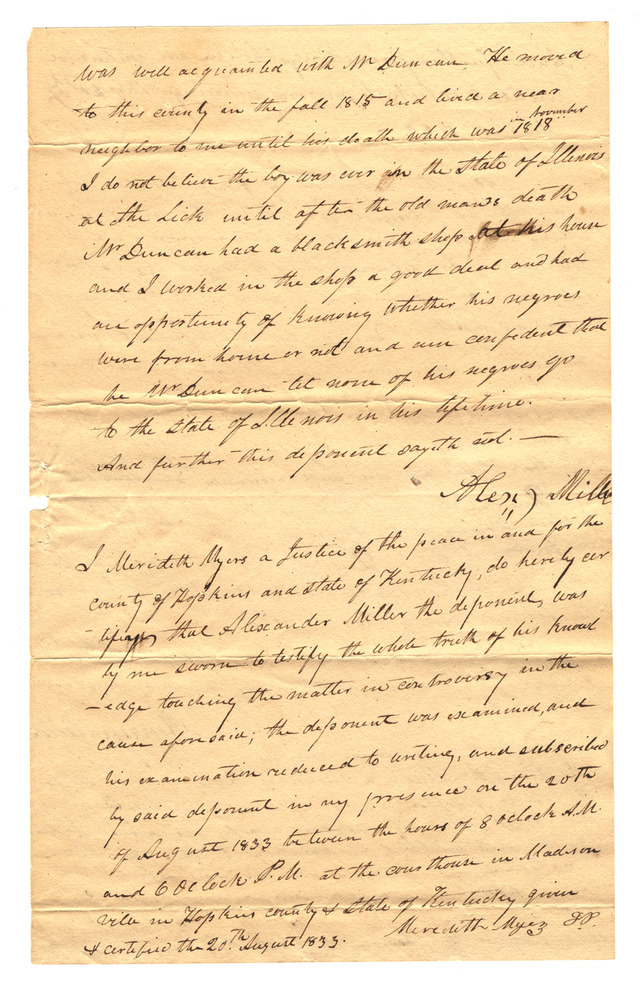 was well acquainted with Mr Duncan. He moved
to this county in the fall 1815 and lived a near
neighbor to me until his death which was in November 1818
I do not believe the boy was ever in the state of Illinois
at the Lick until after the old mans death
Mr Duncan had a blacksmith shop at his house
and I worked in the shop a good deal and had
an opportunity of knowing whether his negroes
were from home or not and am confedent that
he Mr Duncan let none of his negroes go
to the state of Illenois in his life time.
And further this deponent sayth not. —
Alexr Miller
I Merideth Myers a Justice of the peace in and for the
county of Hopkins and state of Kentucky, do hereby cer
-tify that Alexander Miller the deponent, was
by me sworn to testify the whole truth of his knowl
-edge touching the matter in controversy in the
cause aforesaid; the deponent was examined, and
his examination reduced to writing, and subscribed
by said deponent in my presence on the 20th
of August 1833 between the hours of 8 oclock A.M.
and 6 Oclock P.M. at the courthouse in Madison
ville in Hopkins county & state of Kentucky given
& certified the 20th August 1833. Meredith Myez JP.